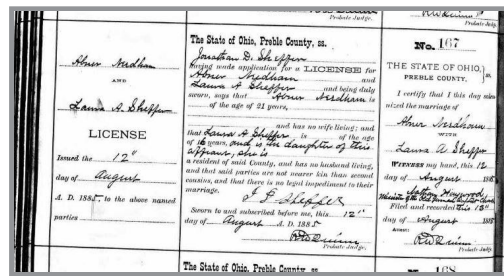 Probate Judge.
Abner Needham
AND
Laura A. Sheffer
LICENSE
Issued the 12"
day of August
A. D. 1885, to the above named
parties
The State of Ohio, Preble County, ss.
Jonathan D. Sheffer
Having made application for a LICENSE for
Abner Needham and
Laura A Sheffer and being duly
sworn, says that Abner Needham is
of the age of 21 years,
and has no wife living; and
that Laura A Sheffer is of the age
of 16 years, and is the daughter of this
affiant, she is
a resident of said County, and has no husband living,
and that said parties are not nearer kin than second
cousins, and that there is no legal impediment to their
marriage.
J D Sheffer
Sworn to and subscribed before me, this 12"
day of August A. D. 1885
Probate Judge.
The State of Ohio, Preble County, ss.
Probate Judg
No. 167
THE STATE OF OHIO,
PREBLE COUNTY,
I certify that I this day
nized the marriage of
Abner Needham
WITH
Laura A. Sheffer
WITNESS my hand, this 12
day of August 188
Filed and recorded this 13"
day of August 188
Probate Judge.
No. 168